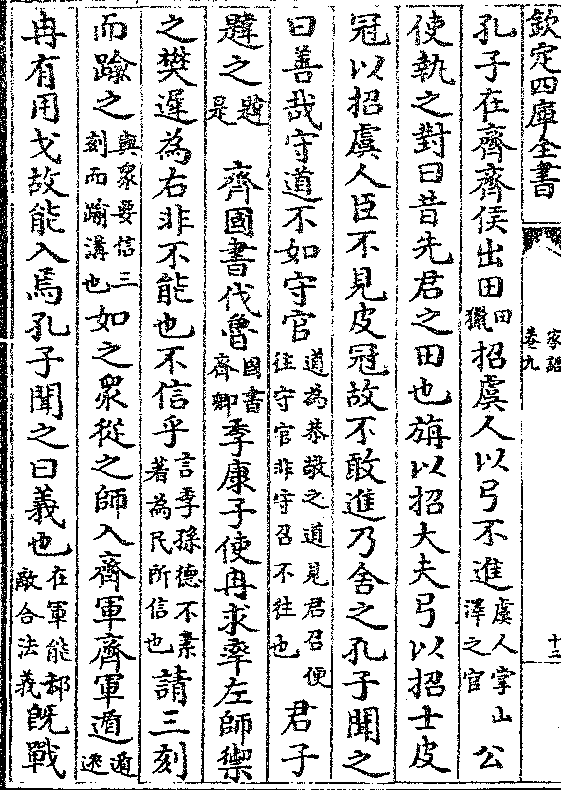 欽定四庫全書 家語 卷九 十二
孔子在齊齊侯出田田獵招虞人以弓不進虞人掌山澤之官公
使執之對曰昔先君之田也旃以招大夫弓以招士皮
冠以招虞人臣不見皮冠故不敢進乃舍之孔子聞之
曰善哉守道不如守官道為恭敬之道見君召便往守官非守召不往也君子
韙之韙是 齊國書伐魯國書齊卿季康子使冉求率左師禦
之樊遲為右非不能也不信乎言季孫德不素著為民所信也請三刻
而踰之與衆要信三刻而踰溝也如之眾從之師入齊軍齊軍遁遁逃
冉有用戈故能入焉孔子聞之曰義也在軍能却敵合法義既戰